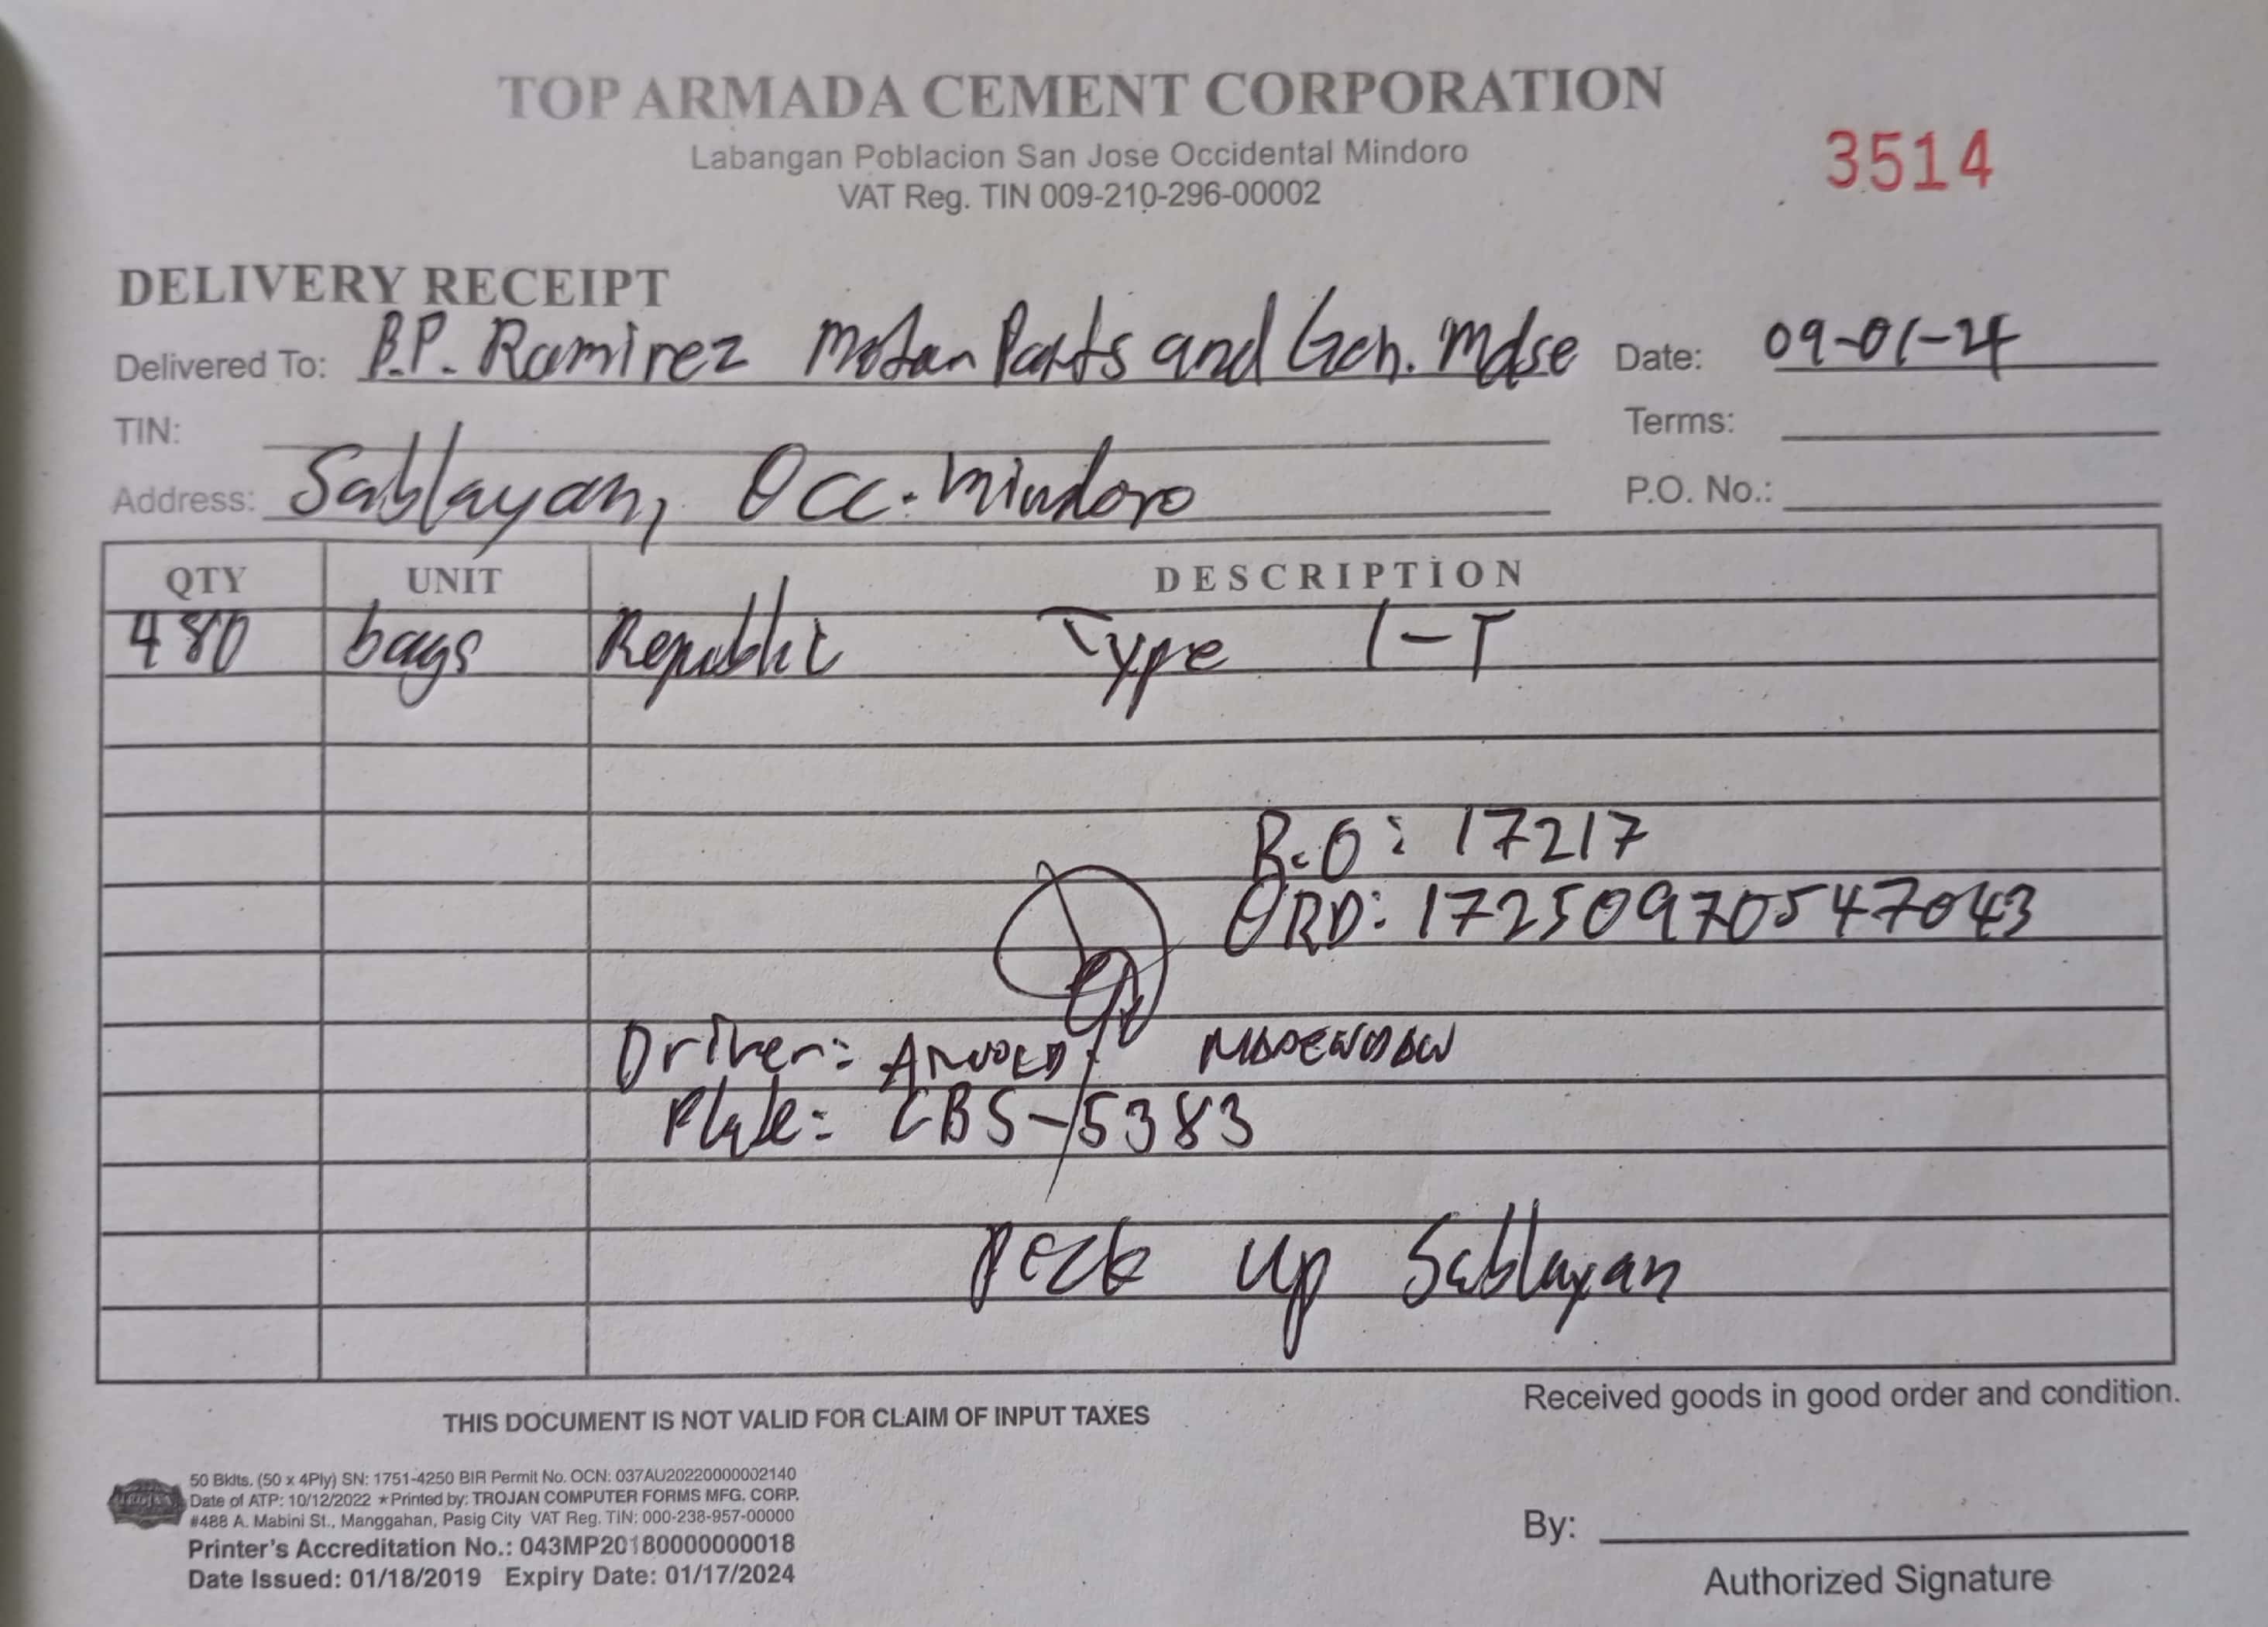 TOP ARMADA CEMENT CORPORATION
Labangan Poblacion San Jose Occidental Mindoro
VAT Reg. TIN 009-210-296-00002
3514
DELIVERY RECEIPT
Delivered To: B.P. Ramirez Motor Parts and Gen. Mdse Date: 09-01-24
TIN: Terms:
Address: Sablayan, Occ. Mindoro P.O. No.:
QTY UNIT DESCRIPTION
480 bags Republic Type 1-T
R.O: 17217
ORD: 17250970547043
Driver: Arnold
Plate: CBS-5383
Pick up Sablayan
THIS DOCUMENT IS NOT VALID FOR CLAIM OF INPUT TAXES
Received goods in good order and condition.
TROJAN
50 Bklts. (50 x 4Ply) SN: 1751-4250 BIR Permit No. OCN: 037AU20220000002140
Date of ATP: 10/12/2022 ★Printed by: TROJAN COMPUTER FORMS MFG. CORP.
#488 A. Mabini St., Manggahan, Pasig City VAT Reg. TIN: 000-238-957-00000
Printer's Accreditation No.: 043MP20180000000018
Date Issued: 01/18/2019 Expiry Date: 01/17/2024
By:
Authorized Signature